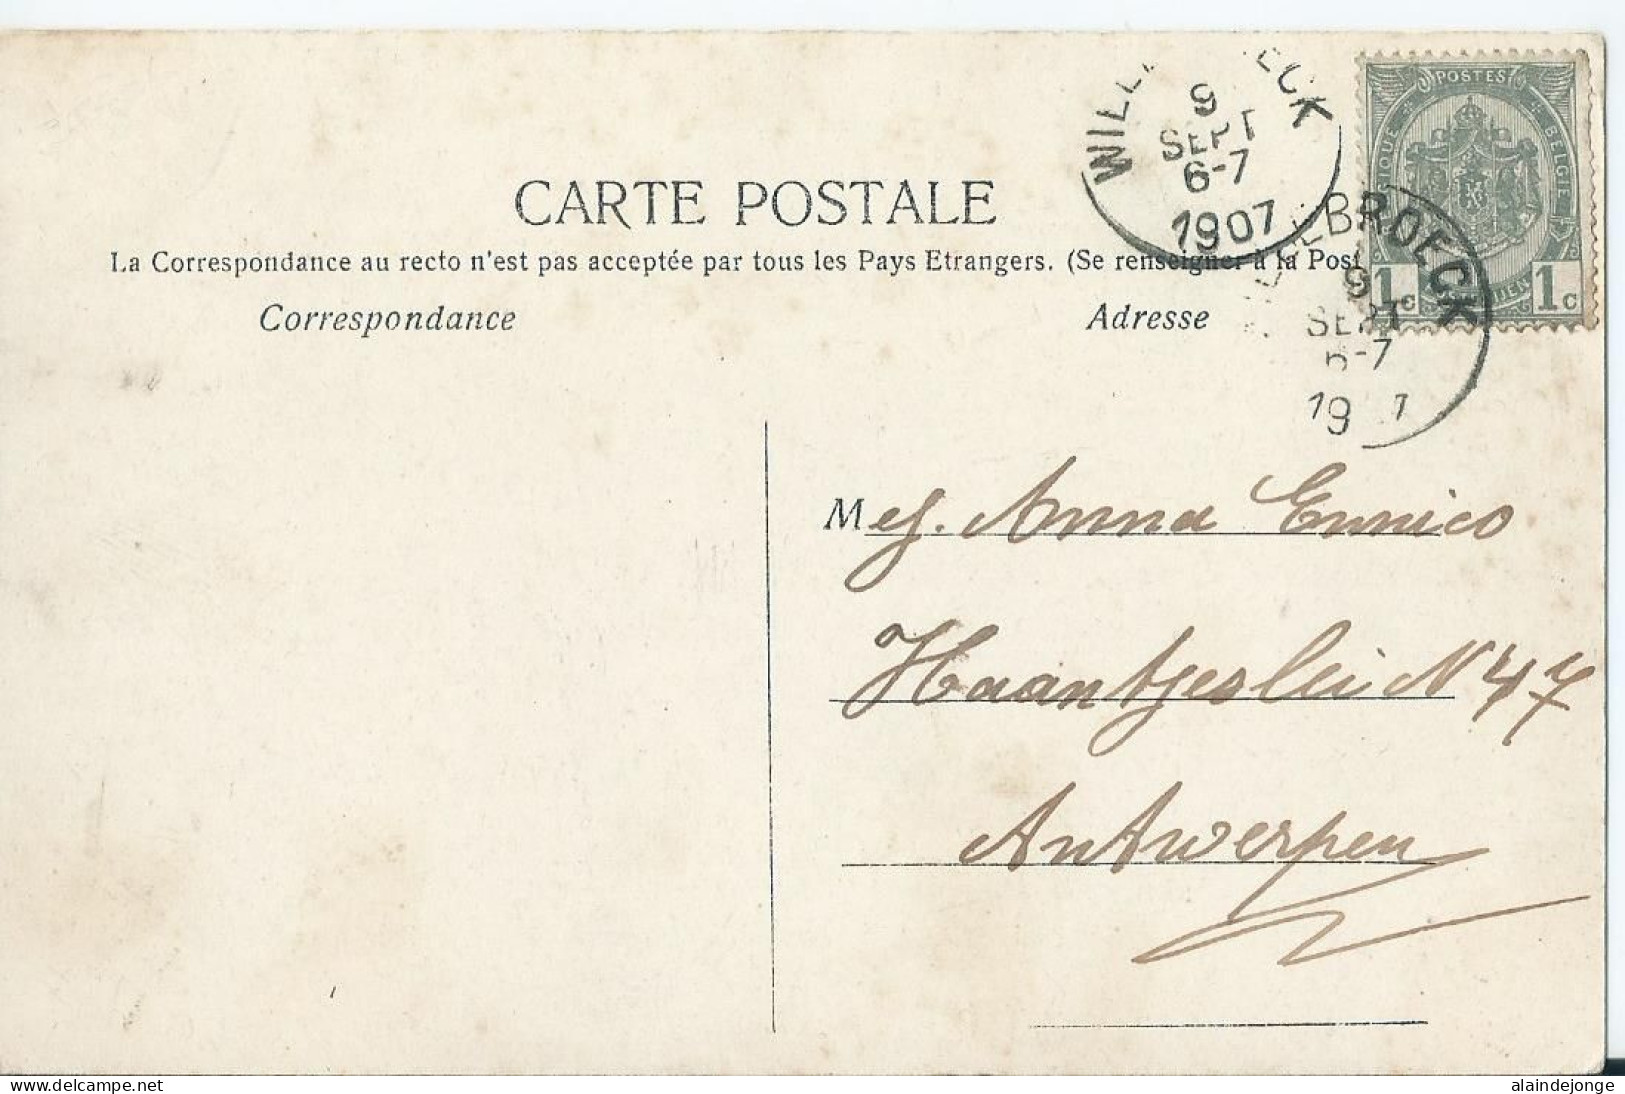 WILL ECK
9
SEPT
6-7
1907
POSTES
BELGIQUE BELGIE
1c 1c
CARTE POSTALE
La Correspondance au recto n'est pas acceptée par tous les Pays Etrangers. (Se renseigner à la Post
Correspondance
Adresse
EBROECK
9
SEPT
6-7
19 7
Mej. Anna Ennico
Haantjeslei N 47
Antwerpen
delcampe.net
alaindejonge